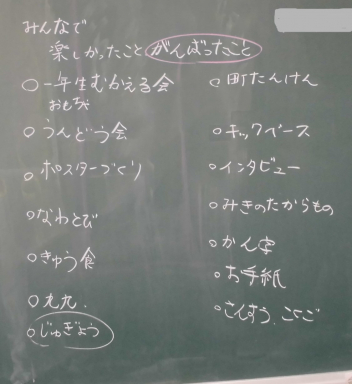 みんなで
楽しかったこと がんばったこと
○一年生むかえる会
おもちゃ
○うんどう会
○ポスターづくり
○なわとび
○きゅう食
○九九
○じゅぎょう
○町たんけん
○キックベース
○インタビュー
○みきのたからもの
○かん字
○お手紙
○さんすう、こくご